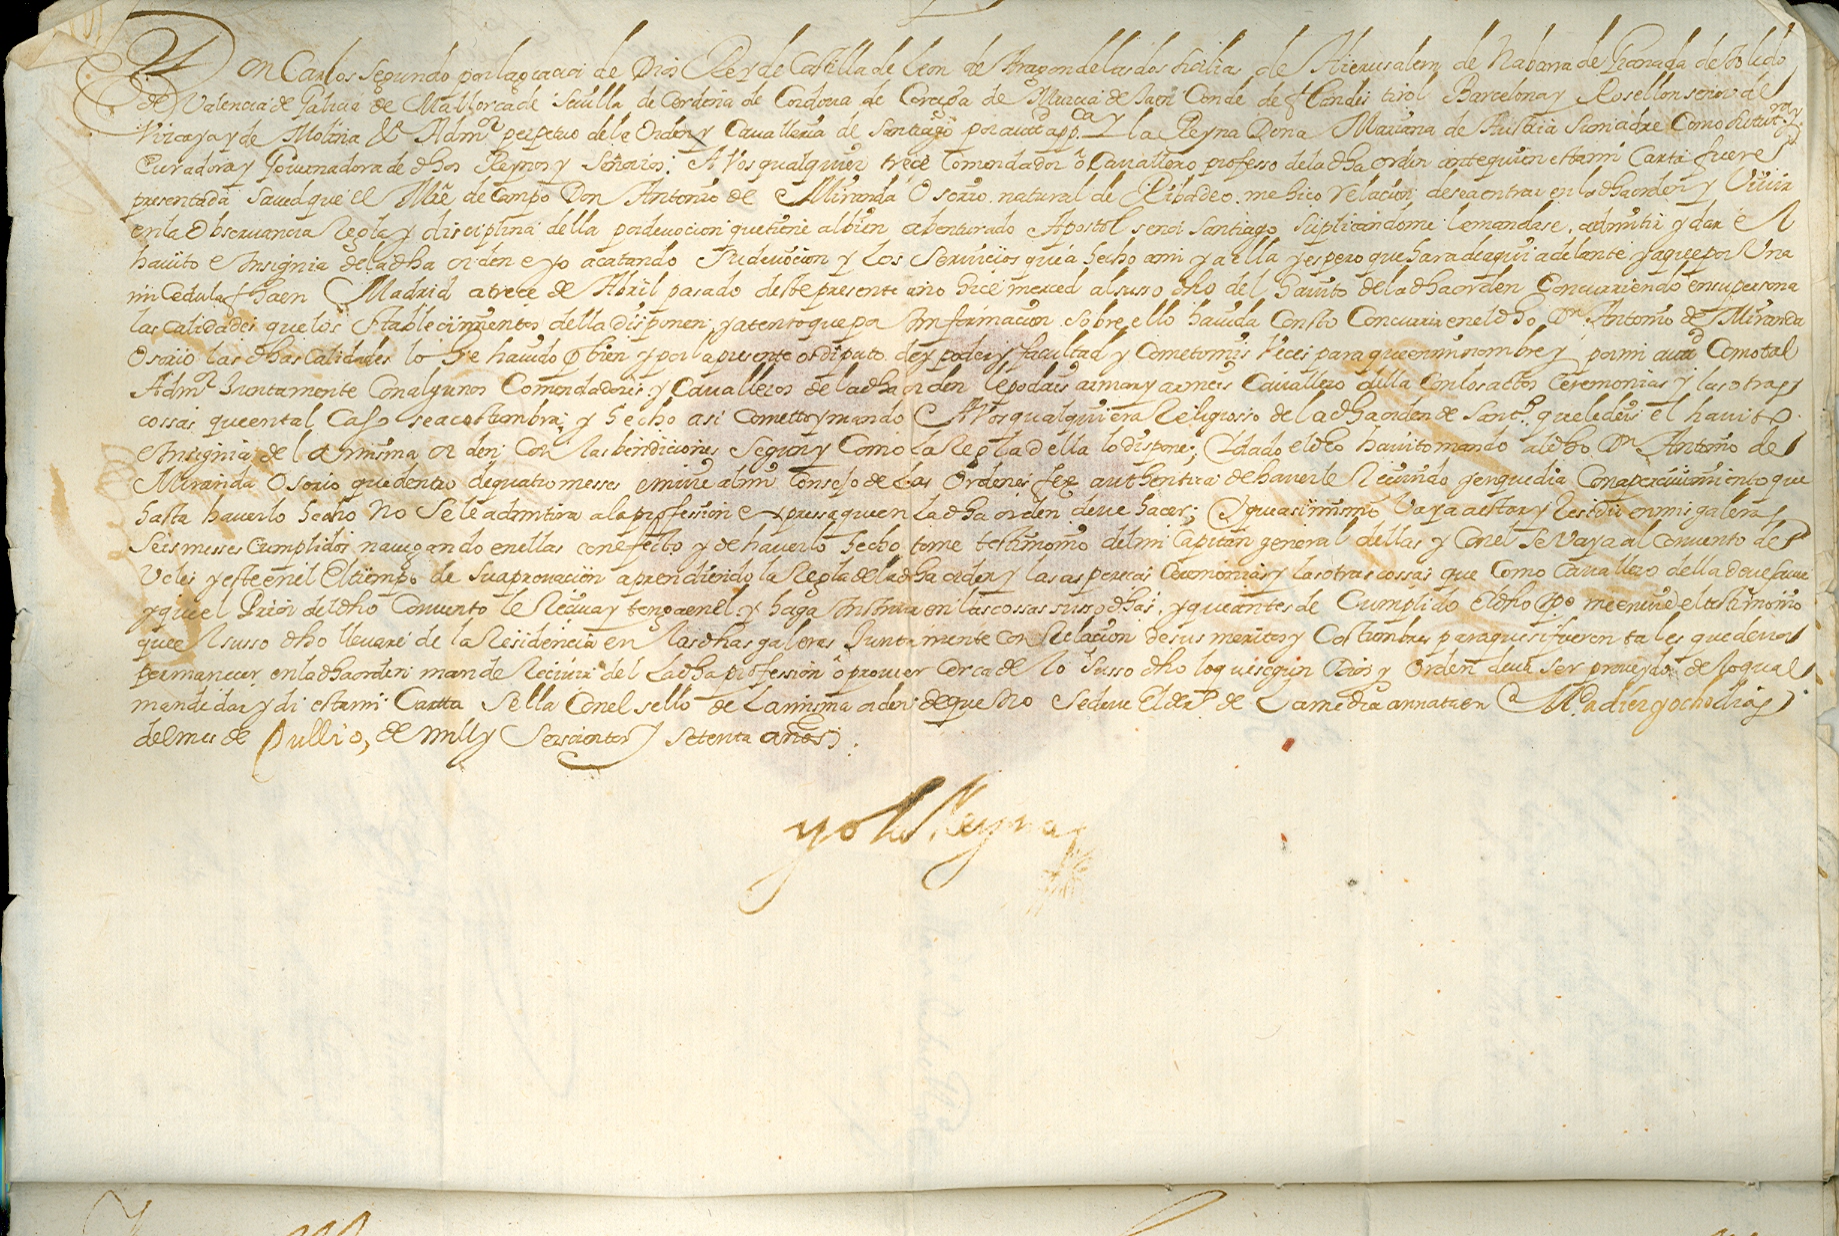 Don Carlos Segundo por la gracia de Dios Rey de Castilla de Leon de Aragon de las dos Sicilias de Hierusalem de Nabarra de Granada de Toledo
de Valencia de Galicia de Mallorca de Sevilla de Cerdeña de Cordova de Corcega de Murcia de Jaen Conde de Flandes tirol Barcelona y Rosellon señor de
Vizcaya y de Molina &c Adm.or perpetuo de la Orden y Cavalleria de Santiago por autd app.ca y la Reyna Dona Mariana de Austria Su madre Como su tutora y
Curadora y Governadora de dhos Reynos y Señorios: A Vos qualquier trece Comendador o Cavallero professo de la dha orden ante quien esta mi Carta fuere
presentada Saved que el Mre de Campo Don Antonio de Miranda Osorio natural de Ribadeo me hico relacion desea entrar en la dha orden y Vivir
en la Observancia Regla y disciplina della por devocion que tiene al bien abenturado Apostol senor Santiago Suplicandome le mandase admitir y dar el
havito e Insignia de la dha orden e yo acatando Su devocion y los Servicios que á hecho a mi y a ella y espero que hara de aqui adelante y a que por Una
mi Cedula fha en Madrid a trece de Abril pasado deste presente año hice merced al susso dho del havito de la dha orden Concurriendo en su persona
las calidades que los Stablecimientos della disponen y atento que por Informacion sobre ello havida Consto Concurria en el dho Dn Antonio de Miranda
Osorio las dhas Calidades lo he havido por bien y por la presente os diputo doy poder y facultad y Cometo mis Veces para que en mi nombre y por mi autd Como tal
Adm.or Juntamente Con algunos Comendadores y Cavalleros de la dha orden le podais armar y armeis Cavallero della Con los actos Ceremonias y las otras
cossas que en tal Caso se acostumbra; y hecho asi cometto y mando A Vos qualquiera Religiosso de la dha orden de Santo que le deis el havito
e Insignia de la misma orden Con las bendiciones Segun y Como la Regla della lo dispone; Y dado el dho havito mando al dho Dn Antonio de
Miranda Osorio que dentro de quatro messes emvie al mi Consejo de las Ordenes fee authentica de haverle Recivido y en que dia Con apercivimiento que
hasta haverlo hecho No se le admitira a la proffession expressa que en la dha orden deve hacer; Y que asimismo Vaya a estar y Residir en mis galeras
Seis messes cumplidos navegando en ellas con efecto y de haverlo hecho tome testimonio del mi Capitan general dellas y Con el Se Vaya al Convento de
Ucles y este en el El tiempo de Su aprovacion aprendiendo la Regla de la dha orden y las asperecas Ceremonias y las otras cossas que Como Cavallero della deve saver
y que el Prior del dho Convento le Reciva y tenga en el y haga Instruir en las cossas susso dhas, y que antes de Cumplido el dho tpo me envie el testimonio
que el susso dho llevare de la Residencia en las dhas galeras Juntamente con Relacion de sus meritos y Costumbres para que si fueren tales que deva
permanecer en la dha orden mande Recivir del La dha proffession o proveer cerca de lo Susso dho lo que segun Dios y Orden deva Ser proveydo de lo qual
mande dar y di esta mi Cartta Sella Con el sello de La misma orden de que No Se deve El dro de La media annata en Md a diez y ocho dias
del mes de Jullio, de mill y Seiscientos y Setenta años;
yo la Reyna